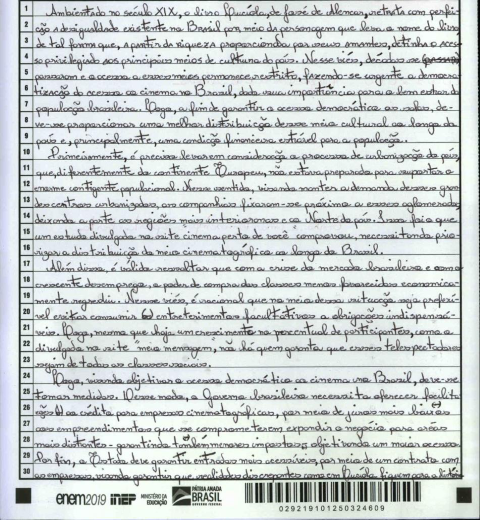 1 Ambientado no século XIX, o livro Lucíola, de José de Alencar, retrata com perfei-
2 ção a desigualdade existente no Brasil por meio da personagem que leva o nome do livro
3 de tal forma que, a partir da riqueza proporcionada por seus amantes, detinha o aces-
4 so privilegiado aos principais meios de cultura do país. Nesse viés, décadas se
5 passaram e o acesso a esses meios permanece restrito, fazendo-se urgente a democra-
6 tização do acesso ao cinema no Brasil, dada sua importância para o bem estar da
7 população brasileira. Logo, a fim de garantir o acesso democrático ao saber, de-
8 ve-se proporcionar uma melhor distribuição desse meio cultural ao longo do
9 país e, principalmente, uma condição financeira estável para a população.
10 Primeiramente, é preciso levar em consideração o processo de urbanização do país,
11 que, diferentemente do continente Europeu, não estava preparado para suportar o
12 enorme contigente populacional. Nesse sentido, visando manter a demanda desses gran-
13 des centros urbanizados, as companhias fixaram-se próximo a esses aglomerados
14 deixando a parte as regiões mais interioranas e ao Norte do país. Isso foi o que
15 um estudo divulgado no site "cinema perto de você" comprovou, necessitando prio-
16 rizar a distribuição do meio cinematográfico ao longo do Brasil.
17 Além disso, é válido ressaltar que com a crise do mercado brasileiro e com o
18 crescente desemprego, o poder de compra das classes menos favorecidas economica-
19 mente regrediu. Nesse viés, é racional que no meio dessa situação seja preferí-
20 vel evitar consumir entreterimentos facultativos a obrigações indispensá-
21 veis. Logo, mesmo que haja um crescimento no percentual de participantes, como o
22 divulgado no site "meio mensagem", não há quem garanta que esses telespectadores
23 sejam de todas as classes sociais.
24 Logo, visando objetivar o acesso democrático ao cinema no Brasil, deve-se
25 tomar medidas. Desse modo, o Governo brasileiro necessita oferecer facilita-
26 ção ao crédito para empresas cinematográficas, por meio de juros mais baixos
27 aos empreendimentos que se comprometerem expandir o negócio para áreas
28 mais distantes - garantindo também menores impostos, objetivando um maior acesso.
29 Por fim, o Estado deve garantir entradas mais acessíveis, por meio de um contrato com
30 as empresas, visando garantir que realidades discrepantes como em Lucíola fiquem para a história
enem2019 inep MINISTÉRIO DA EDUCAÇÃO PÁTRIA AMADA BRASIL GOVERNO FEDERAL
029219101250324609